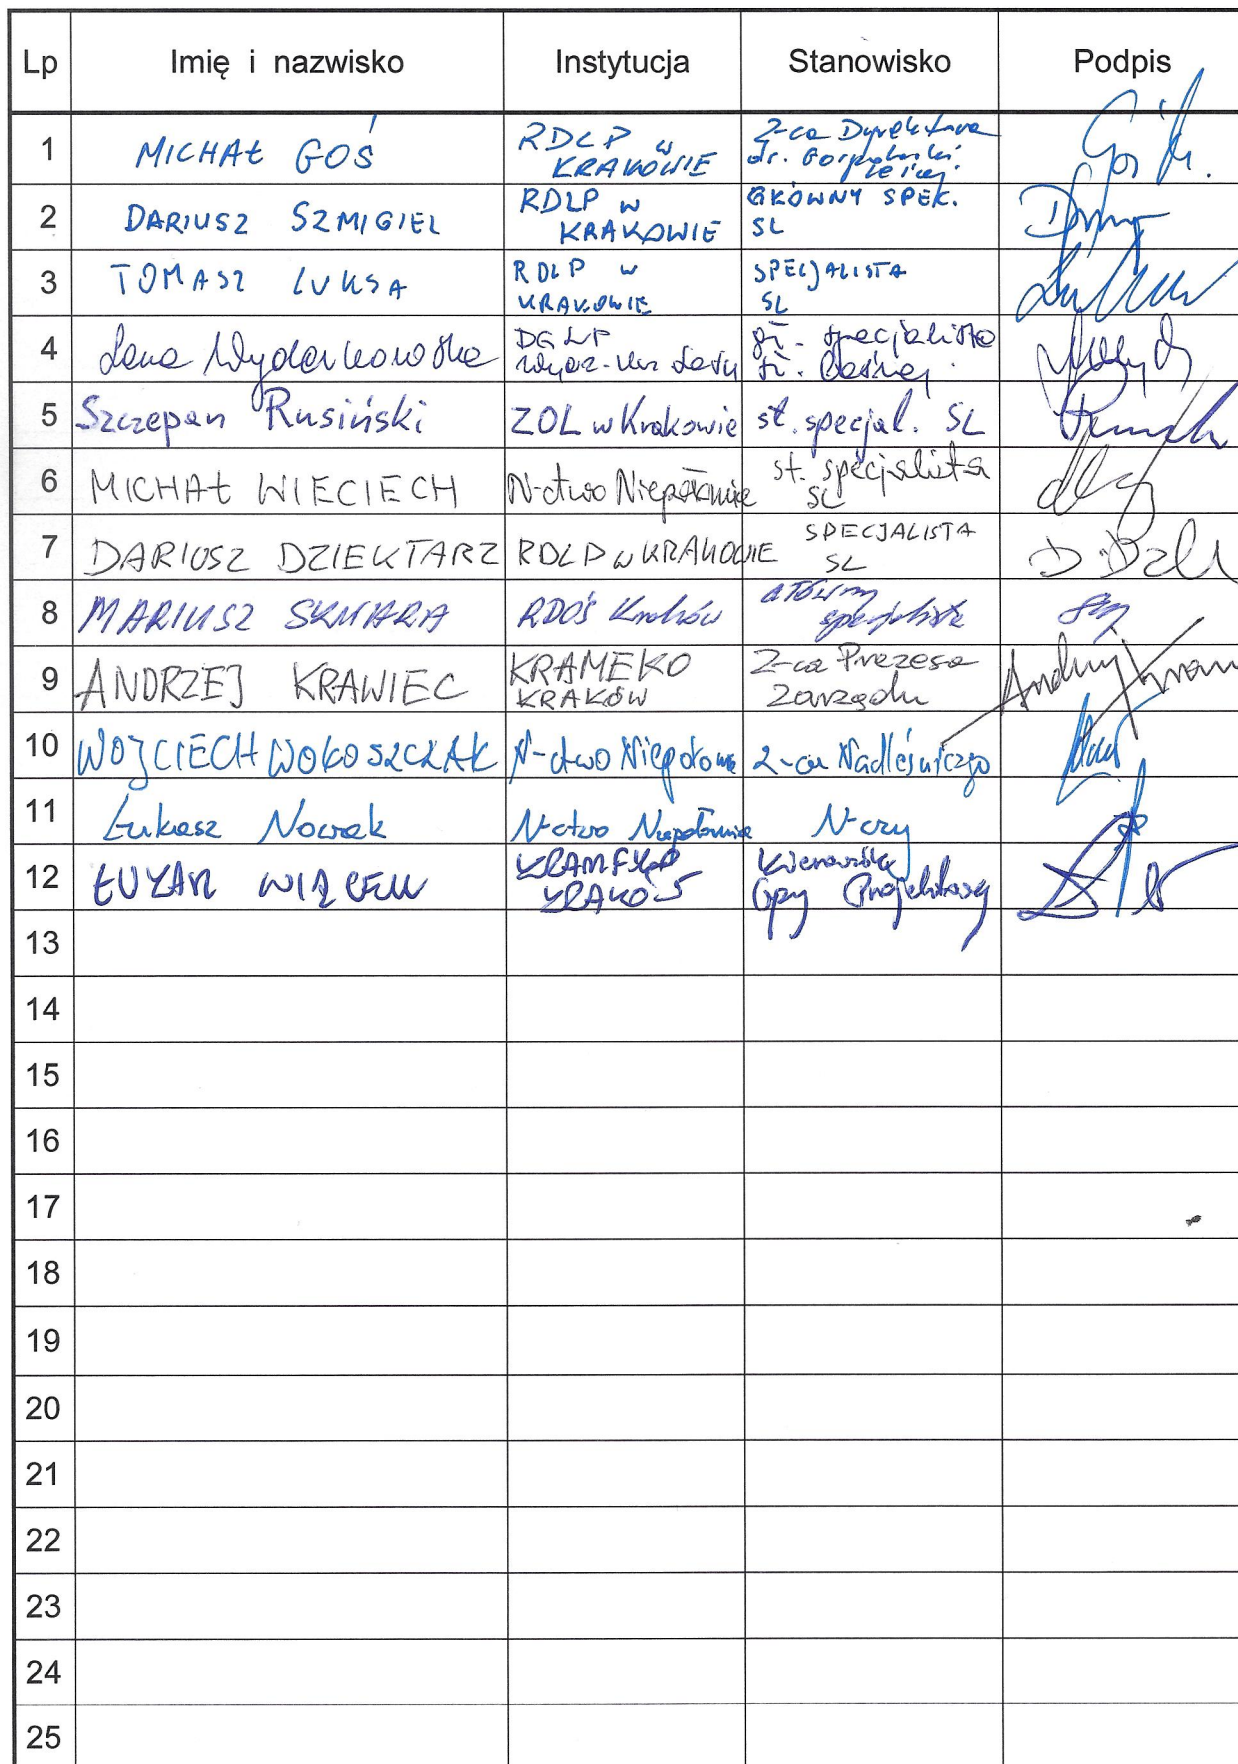 Lp Imię i nazwisko Instytucja Stanowisko Podpis
1 MICHAŁ GOŚ RDLP w KRAKOWIE Z-ca Dyrektora ds. Gospodarki Leśnej
2 DARIUSZ SZMIGIEL RDLP w KRAKOWIE GŁÓWNY SPEK. SL
3 TOMASZ LUKSA RDLP w KRAKOWIE SPECJALISTA SL
4 DGLP specjalista
5 Szczepan Rusiński ZOL w Krakowie st. specjal. SL
6 MICHAŁ WIECIECH N-ctwo Niepołomice st. specjalista SL
7 DARIUSZ DZIEKTARZ RDLP w KRAKOWIE SPECJALISTA SL
8 MARIUSZ RDOŚ Kraków główny specjalista
9 ANDRZEJ KRAWIEC KRAMEKO KRAKÓW Z-ca Prezesa Zarządu Andrzej
10 WOJCIECH WOŁOSZCZAK N-ctwo Z-ca Nadleśniczego
11 Łukasz Nowak N-ctwo Niepołomice N-czy
12 KRAMEKO KRAKÓW Kierownik
13
14
15
16
17
18
19
20
21
22
23
24
25